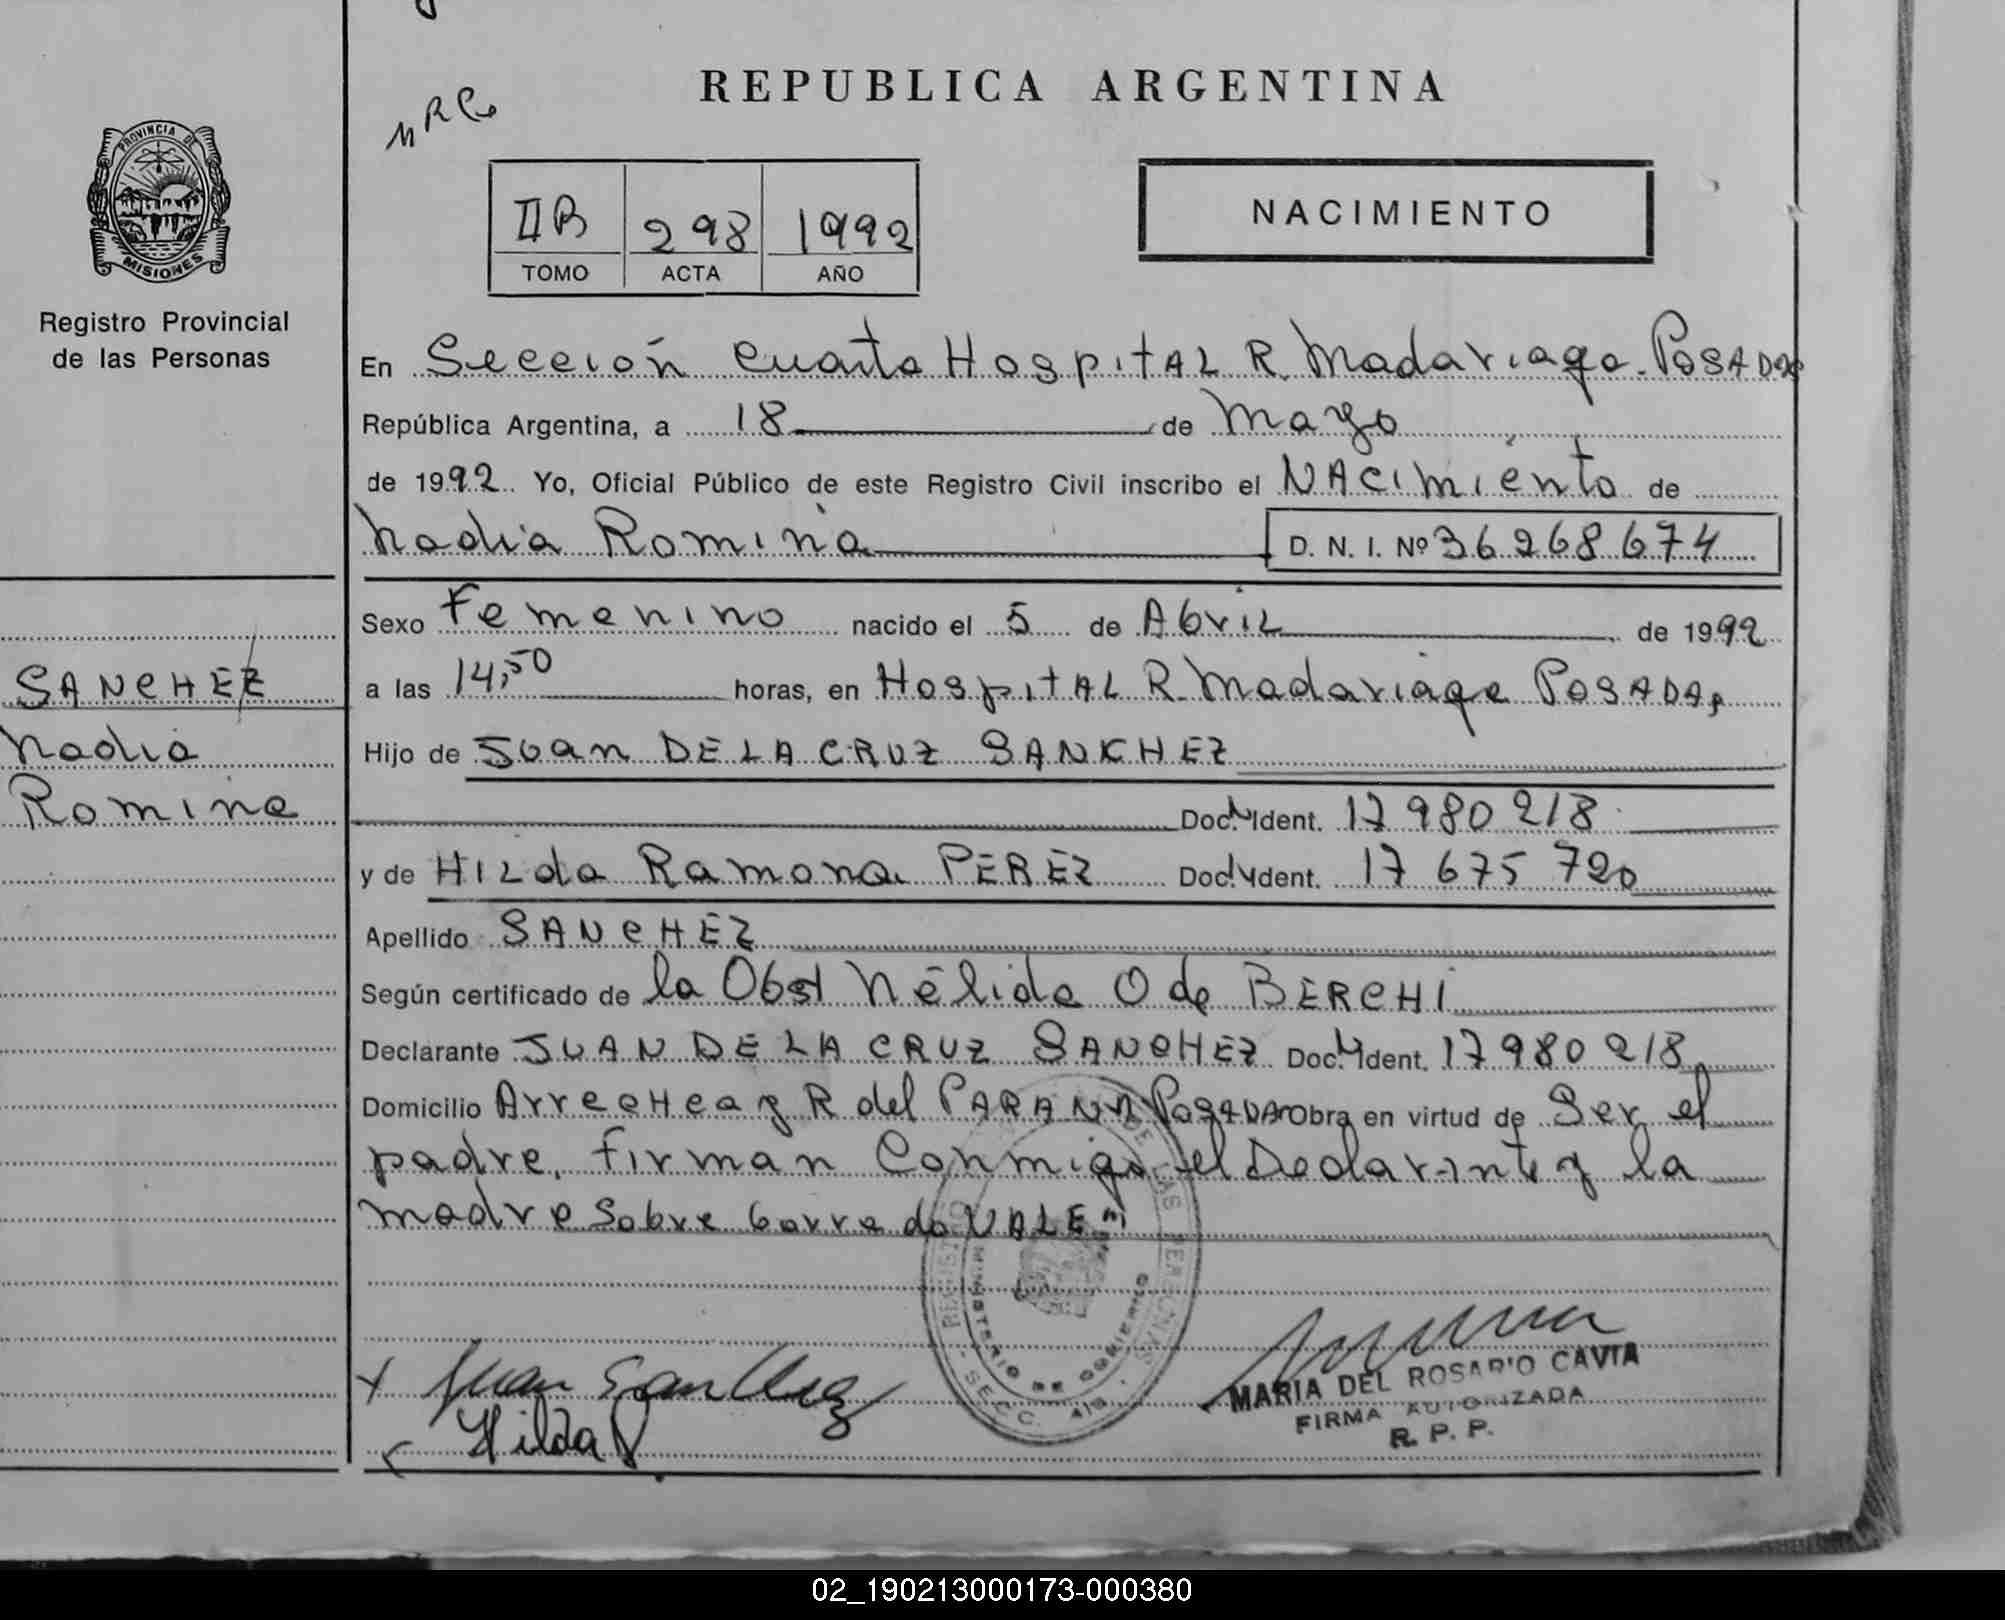 REPUBLICA ARGENTINA
PROVINCIA DE
MISIONES
Registro Provincial
de las Personas
IIB 298 1992
TOMO ACTA AÑO
NACIMIENTO
En Sección cuarta Hospital R. Madariaga. Posadas
República Argentina, a 18 de Mayo
de 1992. Yo, Oficial Público de este Registro Civil inscribo el NACimiento de
Nadia Romina D. N. I. Nº 36 268 674
Sexo Femenino nacido el 5 de Abril de 1992
a las 14,50 horas, en Hospital R. Madariaga Posadas
Hijo de Juan DE LA CRUZ SANCHEZ
Doc. Ident. 17 980 218
y de Hilda Ramona PEREZ Doc. Ident. 17 675 720
Apellido SANCHEZ
Según certificado de la Obst Nélida O de BERCHI
Declarante JUAN DE LA CRUZ SANCHEZ Doc. Ident. 17 980 218
Domicilio Arrechea y R del PARANA Posadas obra en virtud de Ser el
padre. Firman Conmigo el Declarante y la
madre sobre borrado VALE
SANCHEZ
Nadia
Romina
REGISTRO DE LAS PERSONAS
MINISTERIO DE GOBIERNO
SECC. 4ta
Juan Sanchez
Hilda P
MARIA DEL ROSARIO CAVIA
FIRMA AUTORIZADA
R. P. P.
02_190213000173-000380